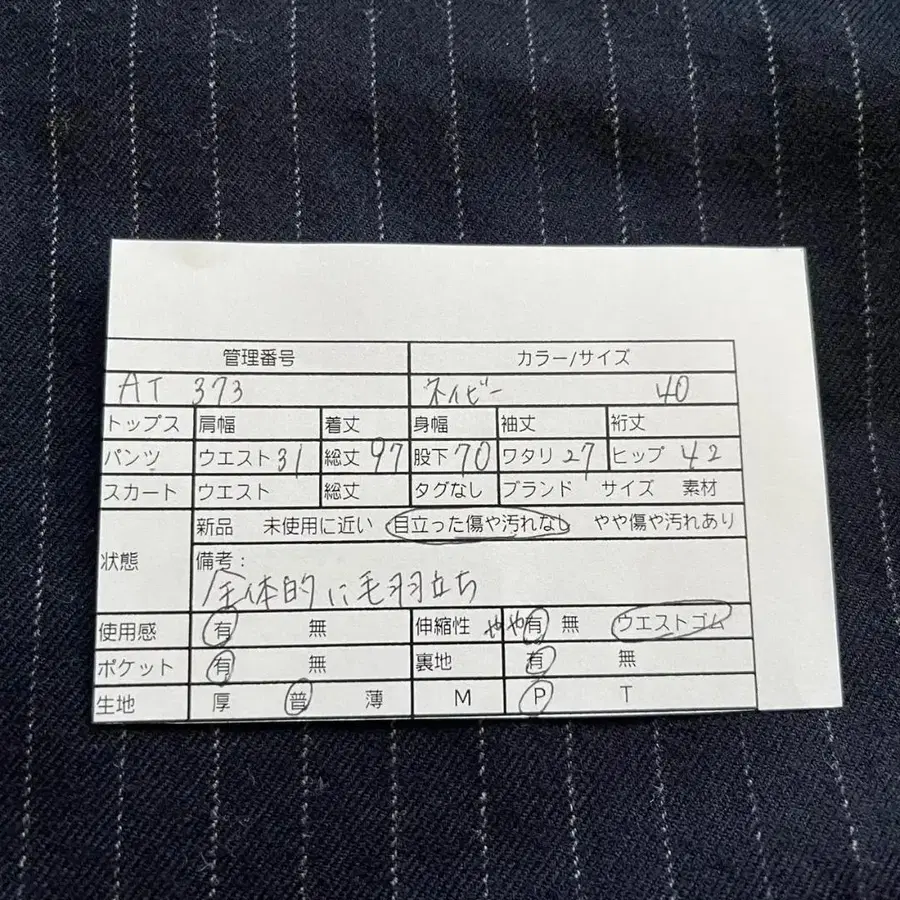 管理番号 カラー/サイズ
AT 373 ネイビー 40
トップス 肩幅 着丈 身幅 袖丈 裄丈
パンツ ウエスト 31 総丈 97 股下 70 ワタリ 27 ヒップ 42
スカート ウエスト 総丈 タグなし ブランド サイズ 素材
新品 未使用に近い 目立った傷や汚れなし やや傷や汚れあり
状態 備考:
全体的に毛羽立ち
使用感 有 無 伸縮性 やや有 無 ウエストゴム
ポケット 有 無 裏地 有 無
生地 厚 普 薄 M P T